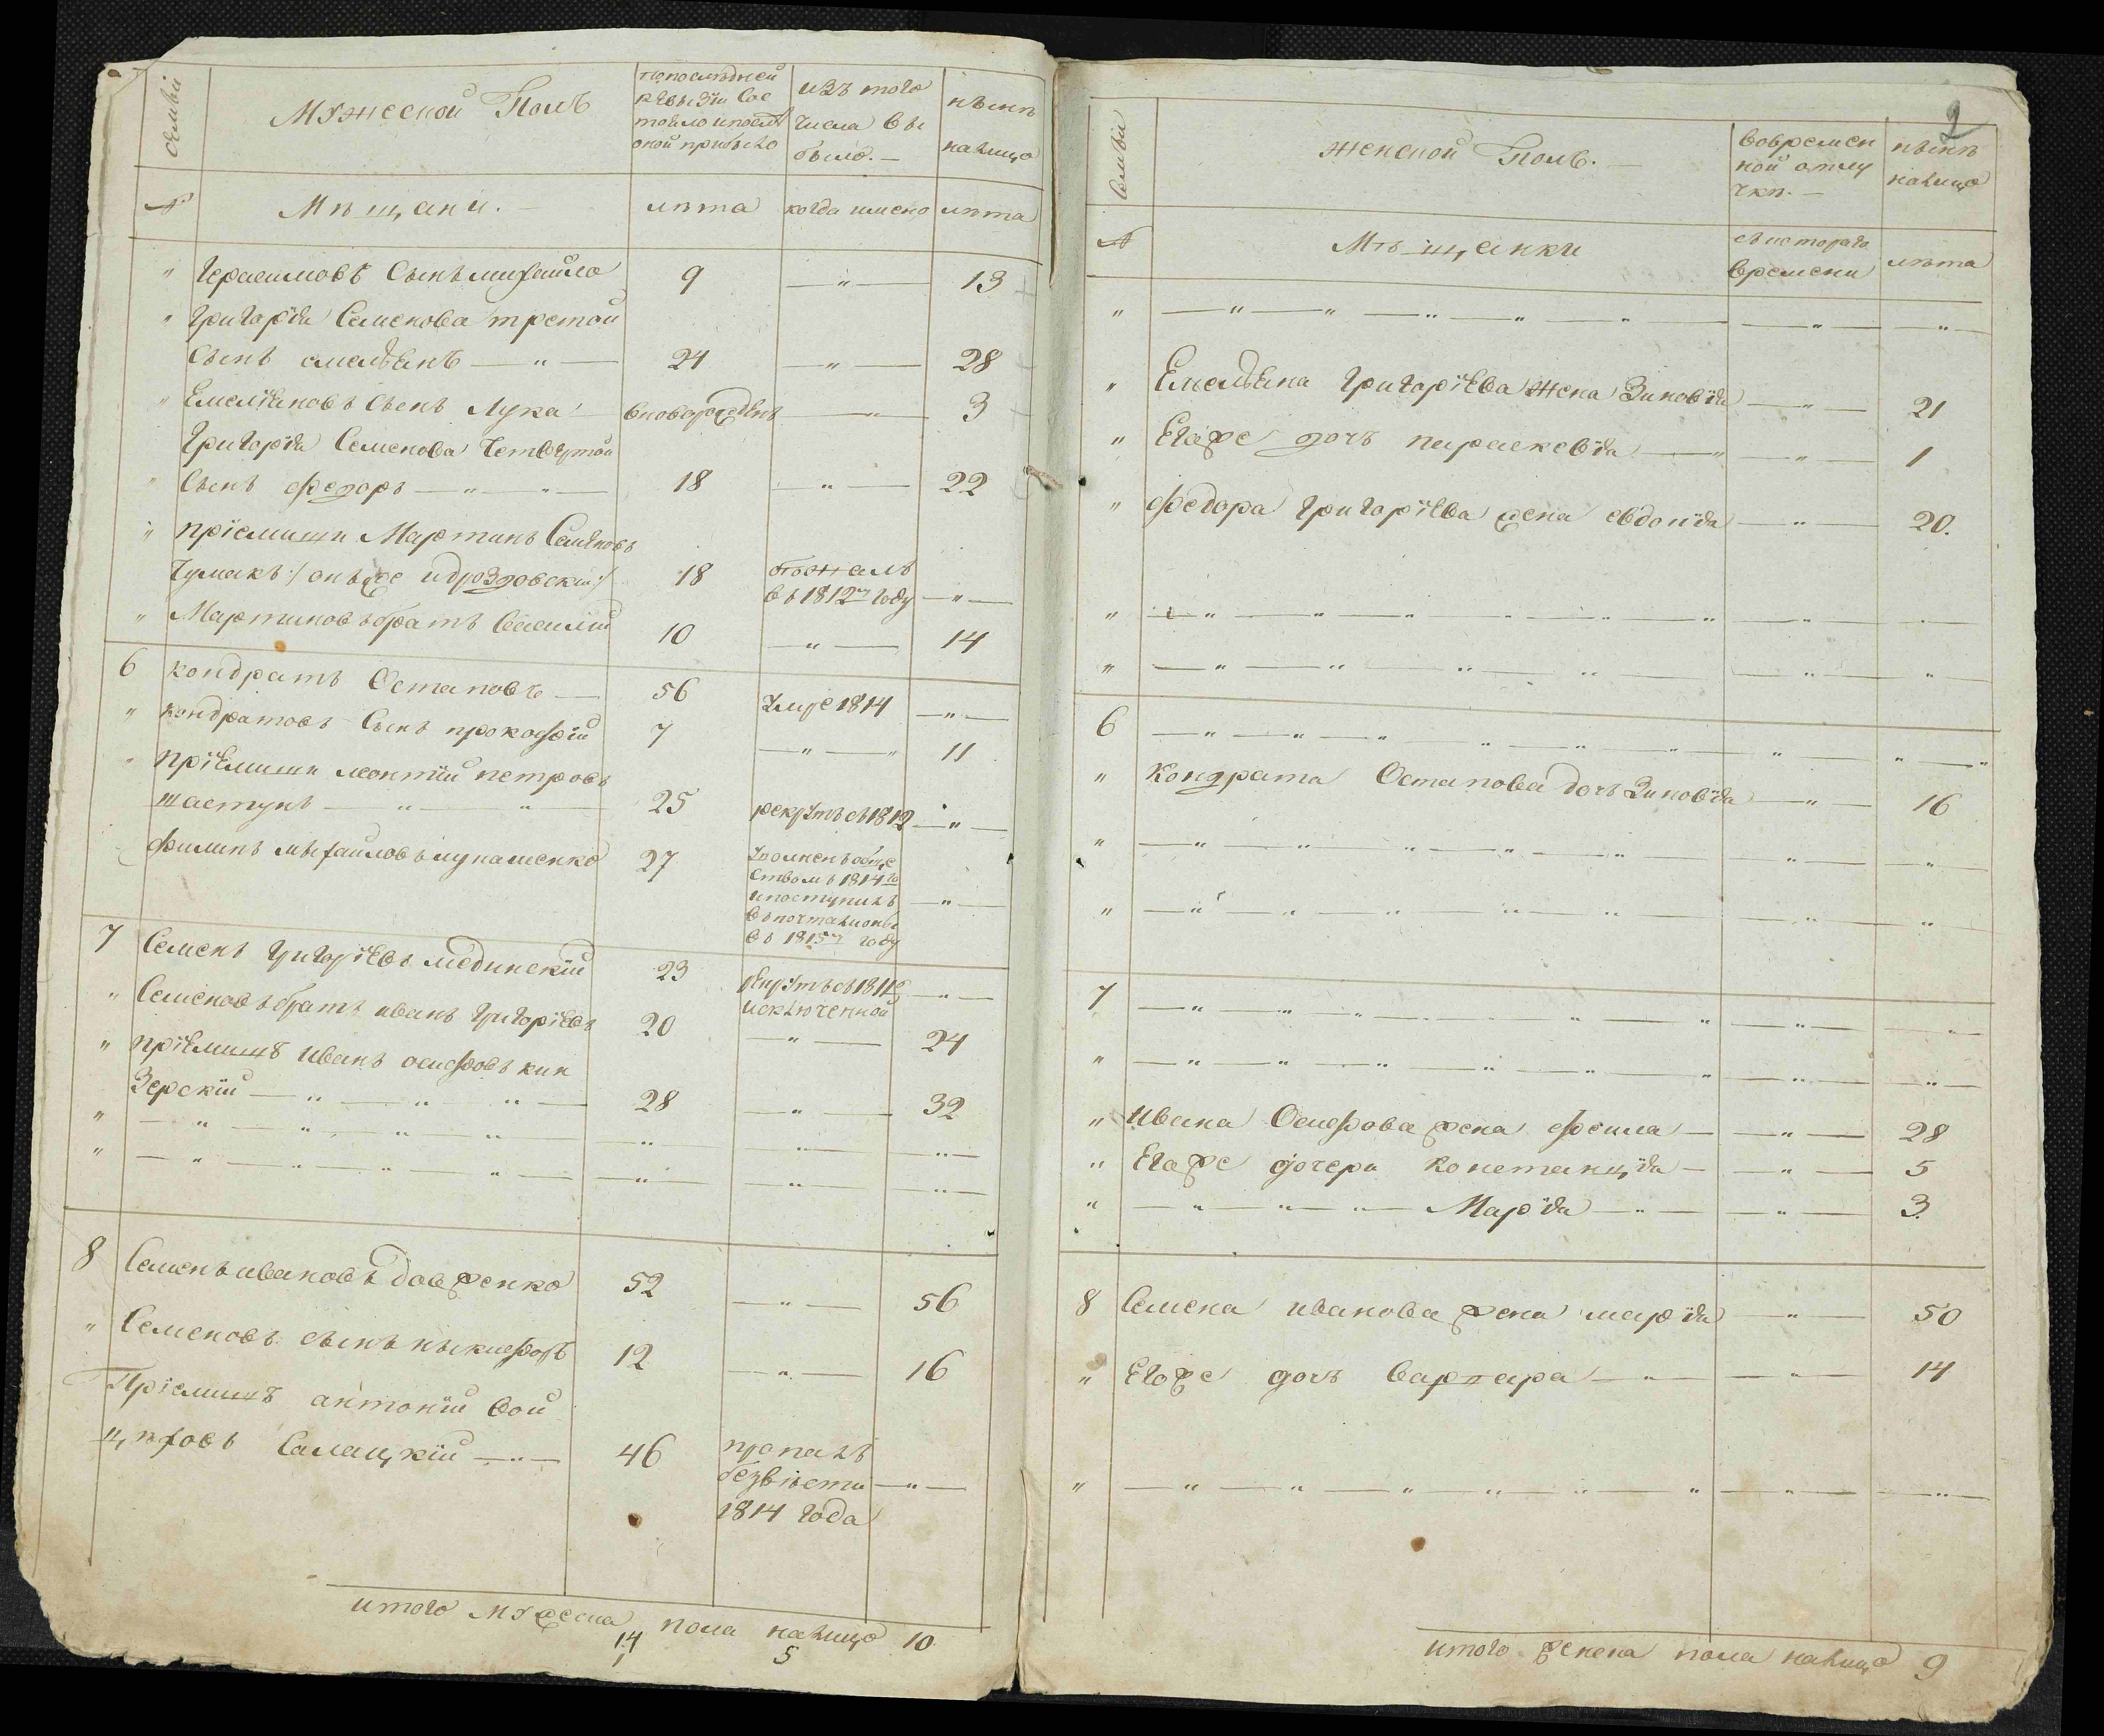 семьи
Мужеской Полъ
по последней
ревизiи сос
тояло и после
оной прибыло
изъ того
числа вы
было. —
нынѣ
налицо
№
Мѣщани. —
лѣта
когда имено
лѣта
" Герасимовъ Сынъ михайло 9 — " — 13
" Григорiя Семенова третой
Сынъ емельянъ — " — 24 — " — 28
" Емелiяновъ Сынъ Лука вноворожденъ — " — 3
Григорiя Семенова Четвертой
" Сынъ федоръ — " — " — 18 — " — 22
" прiемиши Мартинъ Семеновъ
Чумакъ :/ онъ же и дроздовскiй :/ 18 бѣжалъ
въ 1812м году — " —
" Мартиновъ братъ Василiй 10 — " — 14
6 кондратъ Остаповъ — 56 умре 1814 — " —
" кондратовъ Сынъ прокофiй 7 — " — " 11
" прiемиши леонтiй петровъ
шастунъ — " — " — 25 рекрутъ съ 1812 — " —
филипъ михайловъ лукашенко 27 уволненъ обще
ствомъ 1814го
и поступилъ — " —
въ почталiоны
въ 1815м году
7 Семенъ Григорiевъ мединскiй 23 рекрутъ съ 1811е — " —
исключенной
" Семеновъ братъ иванъ Григорiевъ 20 — " — 24
" прiемишъ иванъ осифовъ кин
зерскiй — " — " — " — 28 — " — 32
" — " — " — " — " — — " — — " — — " —
" — " — " — " — " — — " — — " — — " —
8 Семенъ ивановъ довженко 52 — " — 56
" Семеновъ сынъ никифоръ 12 — " — 16
Прiемишъ антонiй вой
цѣховъ Салацкiй — " — 46 пропалъ
безвѣсти — " —
1814 года
итого мужеска пола налицо 10
14 5
2
семьи
женской Полъ. —
вовремен
ной отлу
чки. —
нынѣ
налицо
№
Мѣщанки
съ которого
времени
лѣта
" — " — " — " — " — " — — " — — " —
" Емельяна Григорiева жена Зиновiя — " — 21
" Егоже дочъ параскевiя — " — " — 1
" федора Григорiева жена евдокiя — " — 20.
" — " — " — " — " — " — " — " — — " —
" — " — " — " — " — — " — "
6 — " — " — " — " — " — " — " " — "
" Кондрата Остапова дочъ Зиновiя — " — 16
" — " — " — " — " — " — — " — — " —
" — " — " — " — " — " — " — "
7 — " — " — " — " — " — " — — " —
" — " — " — " — " — " — " — " — — " —
" Ивана Осифова жена ефсима — — " — 28
" Егоже дочери констанцiя — — " — 5
" — " — " — " — Марiя — " — — " — 3.
8 Семена иванова жена марiя — " — 50
" Егоже дочъ варвара — " — — " — 14
" — " — " — " — " — " — " — " — — " —
итого женска пола налицо 9